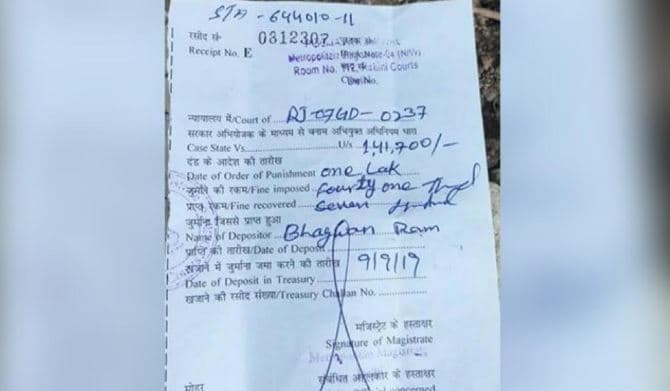 STA - 644010-11
रसीद सं०
Receipt No. E 0312307
Metropolitan Magistrate-04 (N/W)
Room No. 112, Rohini Courts
न्यायालय में/Court of RJ-07GD-0237
सरकार अभियोजक के माध्यम से बनाम अभियुक्त अधिनियम धारा
Case State Vs. U/s 1,41,700/-
दंड के आदेश की तारीख
Date of Order of Punishment one Lak
जुर्माने की रकम/Fine imposed fourty one
प्राप्त रकम/Fine recovered seven
जुर्माना जिससे प्राप्त हुआ
Name of Depositor Bhagwan Ram
प्राप्ति की तारीख/Date of Deposit
खजाने में जुर्माना जमा करने की तारीख 9/9/19
Date of Deposit in Treasury
खजाने की रसीद संख्या/Treasury Challan No.
मजिस्ट्रेट के हस्ताक्षर
Signature of Magistrate
Metropolitan Magistrate
संबंधित अहलकार के हस्ताक्षर
मोहर